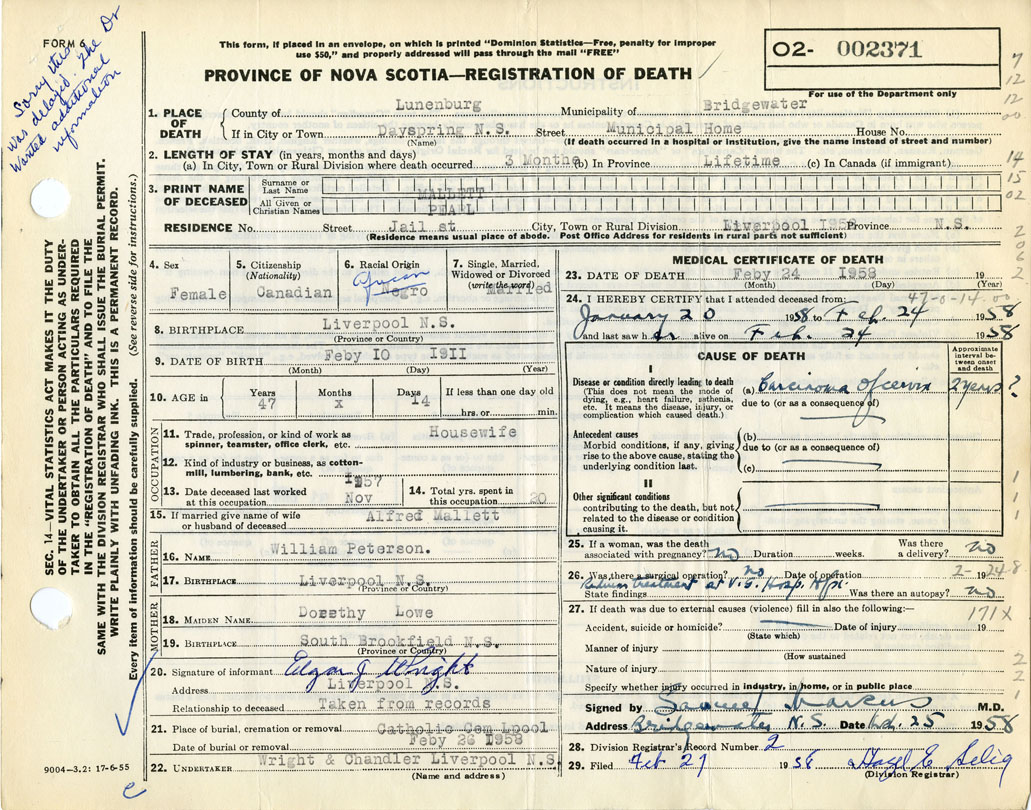 FORM 6
Sorry this
was delayed. The Dr
wanted additional
information
This form, if placed in an envelope, on which is printed "Dominion Statistics—Free, penalty for improper
use $50," and properly addressed will pass through the mail "FREE"
O2- 002371
For use of the Department only
PROVINCE OF NOVA SCOTIA—REGISTRATION OF DEATH
SEC. 14—VITAL STATISTICS ACT MAKES IT THE DUTY
OF THE UNDERTAKER OR PERSON ACTING AS UNDER-
TAKER TO OBTAIN ALL THE PARTICULARS REQUIRED
IN THE "REGISTRATION OF DEATH" AND TO FILE THE
SAME WITH THE DIVISION REGISTRAR WHO SHALL ISSUE THE BURIAL PERMIT.
WRITE PLAINLY WITH UNFADING INK. THIS IS A PERMANENT RECORD.
Every item of information should be carefully supplied. (See reverse side for instructions.)
1. PLACE OF DEATH
County of Lunenburg Municipality of Bridgewater
If in City or Town Dayspring N.S. Street Municipal Home House No.
(Name) (If death occurred in a hospital or institution, give the name instead of street and number)
2. LENGTH OF STAY (in years, months and days)
(a) In City, Town or Rural Division where death occurred 3 Months (b) In Province Lifetime (c) In Canada (if immigrant)
3. PRINT NAME OF DECEASED
Surname or Last Name MALLETT
All Given or Christian Names PEALL
RESIDENCE No. Street Jail st City, Town or Rural Division Liverpool Province N.S.
(Residence means usual place of abode. Post Office Address for residents in rural parts not sufficient)
4. Sex Female
5. Citizenship (Nationality) Canadian
6. Racial Origin Negro
7. Single, Married, Widowed or Divorced (write the word) Married
8. BIRTHPLACE Liverpool N.S.
(Province or Country)
9. DATE OF BIRTH Feby 10 1911
(Month) (Day) (Year)
10. AGE in Years 47 Months X Days 14 If less than one day old hrs. or min.
OCCUPATION
11. Trade, profession, or kind of work as spinner, teamster, office clerk, etc. Housewife
12. Kind of industry or business, as cotton-mill, lumbering, bank, etc.
13. Date deceased last worked at this occupation 1957 Nov
14. Total yrs. spent in this occupation 20
15. If married give name of wife or husband of deceased Alfred Mallett
FATHER
16. NAME William Peterson.
17. BIRTHPLACE Liverpool N.S.
(Province or Country)
MOTHER
18. MAIDEN NAME Dorethy Lowe
19. BIRTHPLACE South Brookfield N.S.
(Province or Country)
20. Signature of informant Edgar J Wright
Address Liverpool N.S.
Relationship to deceased Taken from records
21. Place of burial, cremation or removal Catholic Cem Lpool
Date of burial or removal Feby 26 1958
22. UNDERTAKER Wright & Chandler Liverpool N.S.
(Name and address)
9004—3.2: 17-6-55
MEDICAL CERTIFICATE OF DEATH
23. DATE OF DEATH Feby 24 1958 19
(Month) (Day) (Year)
24. I HEREBY CERTIFY that I attended deceased from: 47-0-14.00
January 20 1958 to Feb. 24 1958
and last saw her alive on Feb. 24 1958
CAUSE OF DEATH
Approximate interval between onset and death
I
Disease or condition directly leading to death (a) Carcinoma of cervix 2 years ?
(This does not mean the mode of dying, e.g., heart failure, asthenia, etc. It means the disease, injury, or complication which caused death.)
due to (or as a consequence of)
Antecedent causes
Morbid conditions, if any, giving rise to the above cause, stating the underlying condition last.
(b)
due to (or as a consequence of)
(c)
II
Other significant conditions
contributing to the death, but not related to the disease or condition causing it.
25. If a woman, was the death associated with pregnancy? no Duration weeks. Was there a delivery? no
26. Was there a surgical operation? no Date of operation 2- 1924.8
State findings Radium treatment at V.G. Hosp. Hfx. Was there an autopsy? no
27. If death was due to external causes (violence) fill in also the following:— 171X
Accident, suicide or homicide? Date of injury 19
(State which)
Manner of injury
(How sustained
Nature of injury
Specify whether injury occurred in industry, in home, or in public place
Signed by Samuel Marcus M.D.
Address Bridgewater N.S. Date Feb. 25 1958
28. Division Registrar's Record Number 2
29. Filed Feb 27 1958 Hazel E Selig
(Division Registrar)
7
12
12
00
14
15
02
2
0
6
2
1
1
1
2
2
1